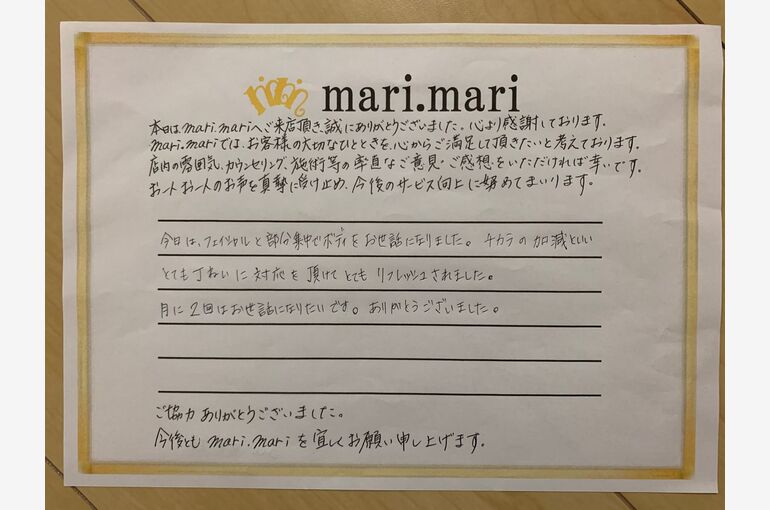 mari.mari
本日はmari.mariへご来店頂き、誠にありがとうございました。心より感謝しております。
mari.mariでは、お客様の大切なひとときを、心からご満足して頂きたいと考えております。
店内の雰囲気、カウンセリング、施術等の率直なご意見・ご感想をいただければ幸いです。
お一人お一人のお声を真摯に受け止め、今後のサービス向上に努めてまいります。
今日は、フェイシャルと部分集中でボディをお世話になりました。チカラの加減といい
とても丁ねいに対応を頂けてとてもリフレッシュされました。
月に2回はお世話になりたいです。ありがとうございました。
ご協力ありがとうございました。
今後ともmari.mariを宜しくお願い申し上げます。